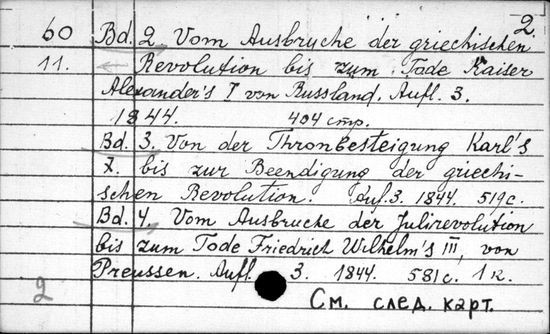 2.
60 Bd. 2. Vom Ausbruche der griechischen
11. Revolution bis zum Tode Kaiser
Alexander's I von Russland. Aufl. 3.
1844. 404 стр.
Bd. 3. Von der Thronbesteigung Karl's
X. bis zur Beendigung der griechi-
schen Revolution. Auf. 3. 1844. 519 с.
Bd. 4. Vom Ausbruche der Julirevolution
bis zum Tode Friedrich Wilhelm's III, von
Preussen. Aufl. 3. 1844. 581 с. 1 к.
2 См. след. карт.